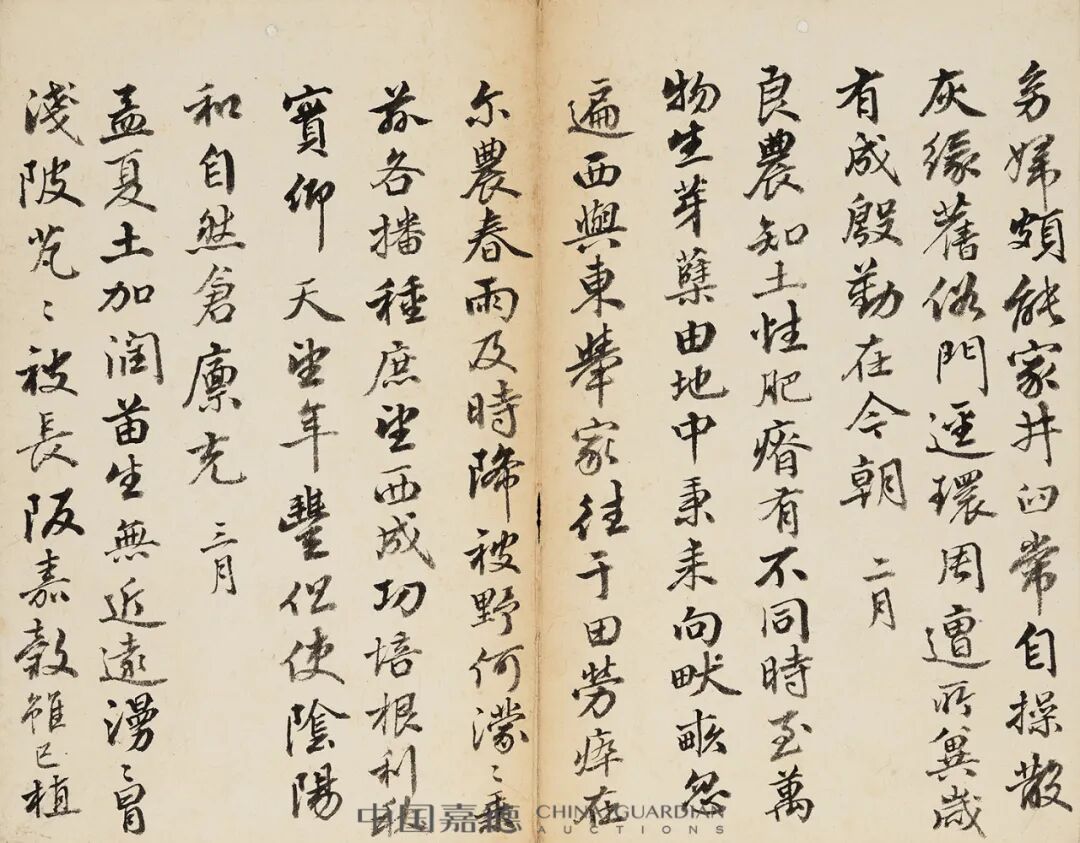 幼婦頗能家井臼常自操散
灰緣舊俗門逕環周遭所冀歲
有成殷勤在今朝 二月
良農知土性肥瘠有不同時至萬
物生芽蘖由地中秉耒向畎畝忽
遍西與東舉家往于田勞瘁在
尔農春雨及時降被野何濛〻乘
茲各播種庶望西成功培根利秋
實仰 天望年豐但使陰陽
和自然倉廩充 三月
孟夏土加潤苗生無近遠漫〻冒
淺陂芃〻被長阪嘉穀雖已植
中国嘉德 CHINA GUARDIAN
AUCTIONS